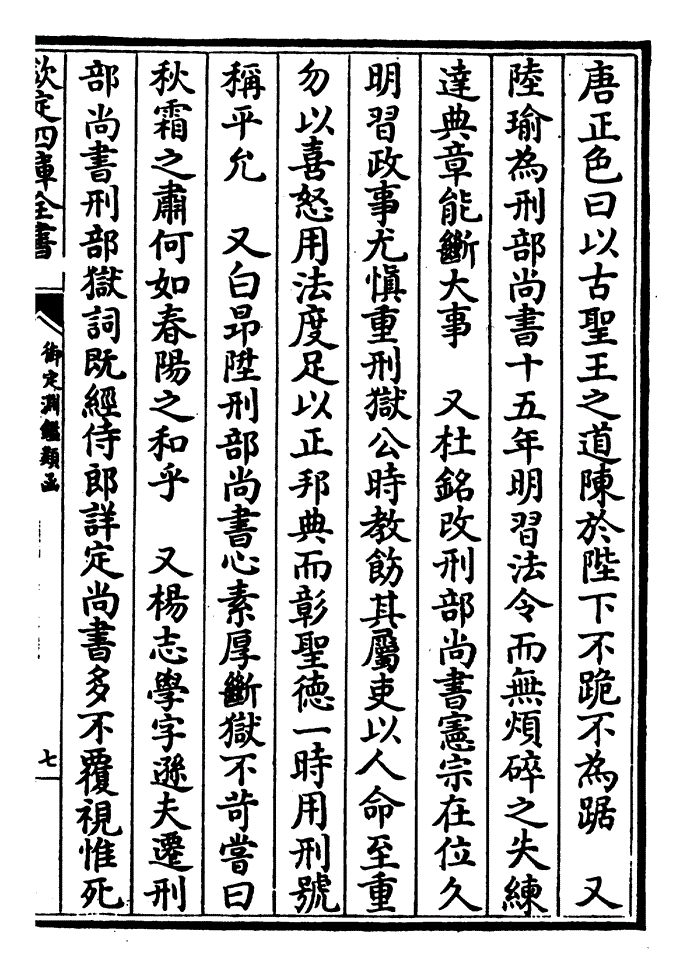 唐正色曰以古聖王之道陳於陛下不跪不為踞　又
陸瑜為刑部尚書十五年明習法令而無煩碎之失練
達典章能斷大事　又杜銘改刑部尚書憲宗在位久
明習政事尤慎重刑獄公時教飭其屬吏以人命至重
勿以喜怒用法度足以正邦典而彰聖德一時用刑號
稱平允　又白昻陞刑部尚書心素厚斷獄不苛嘗曰
秋霜之肅何如春陽之和乎　又楊志學字遜夫遷刑
部尚書刑部獄詞既經侍郎詳定尚書多不覆視惟死
欽定四庫全書
御定淵鑑類函
七